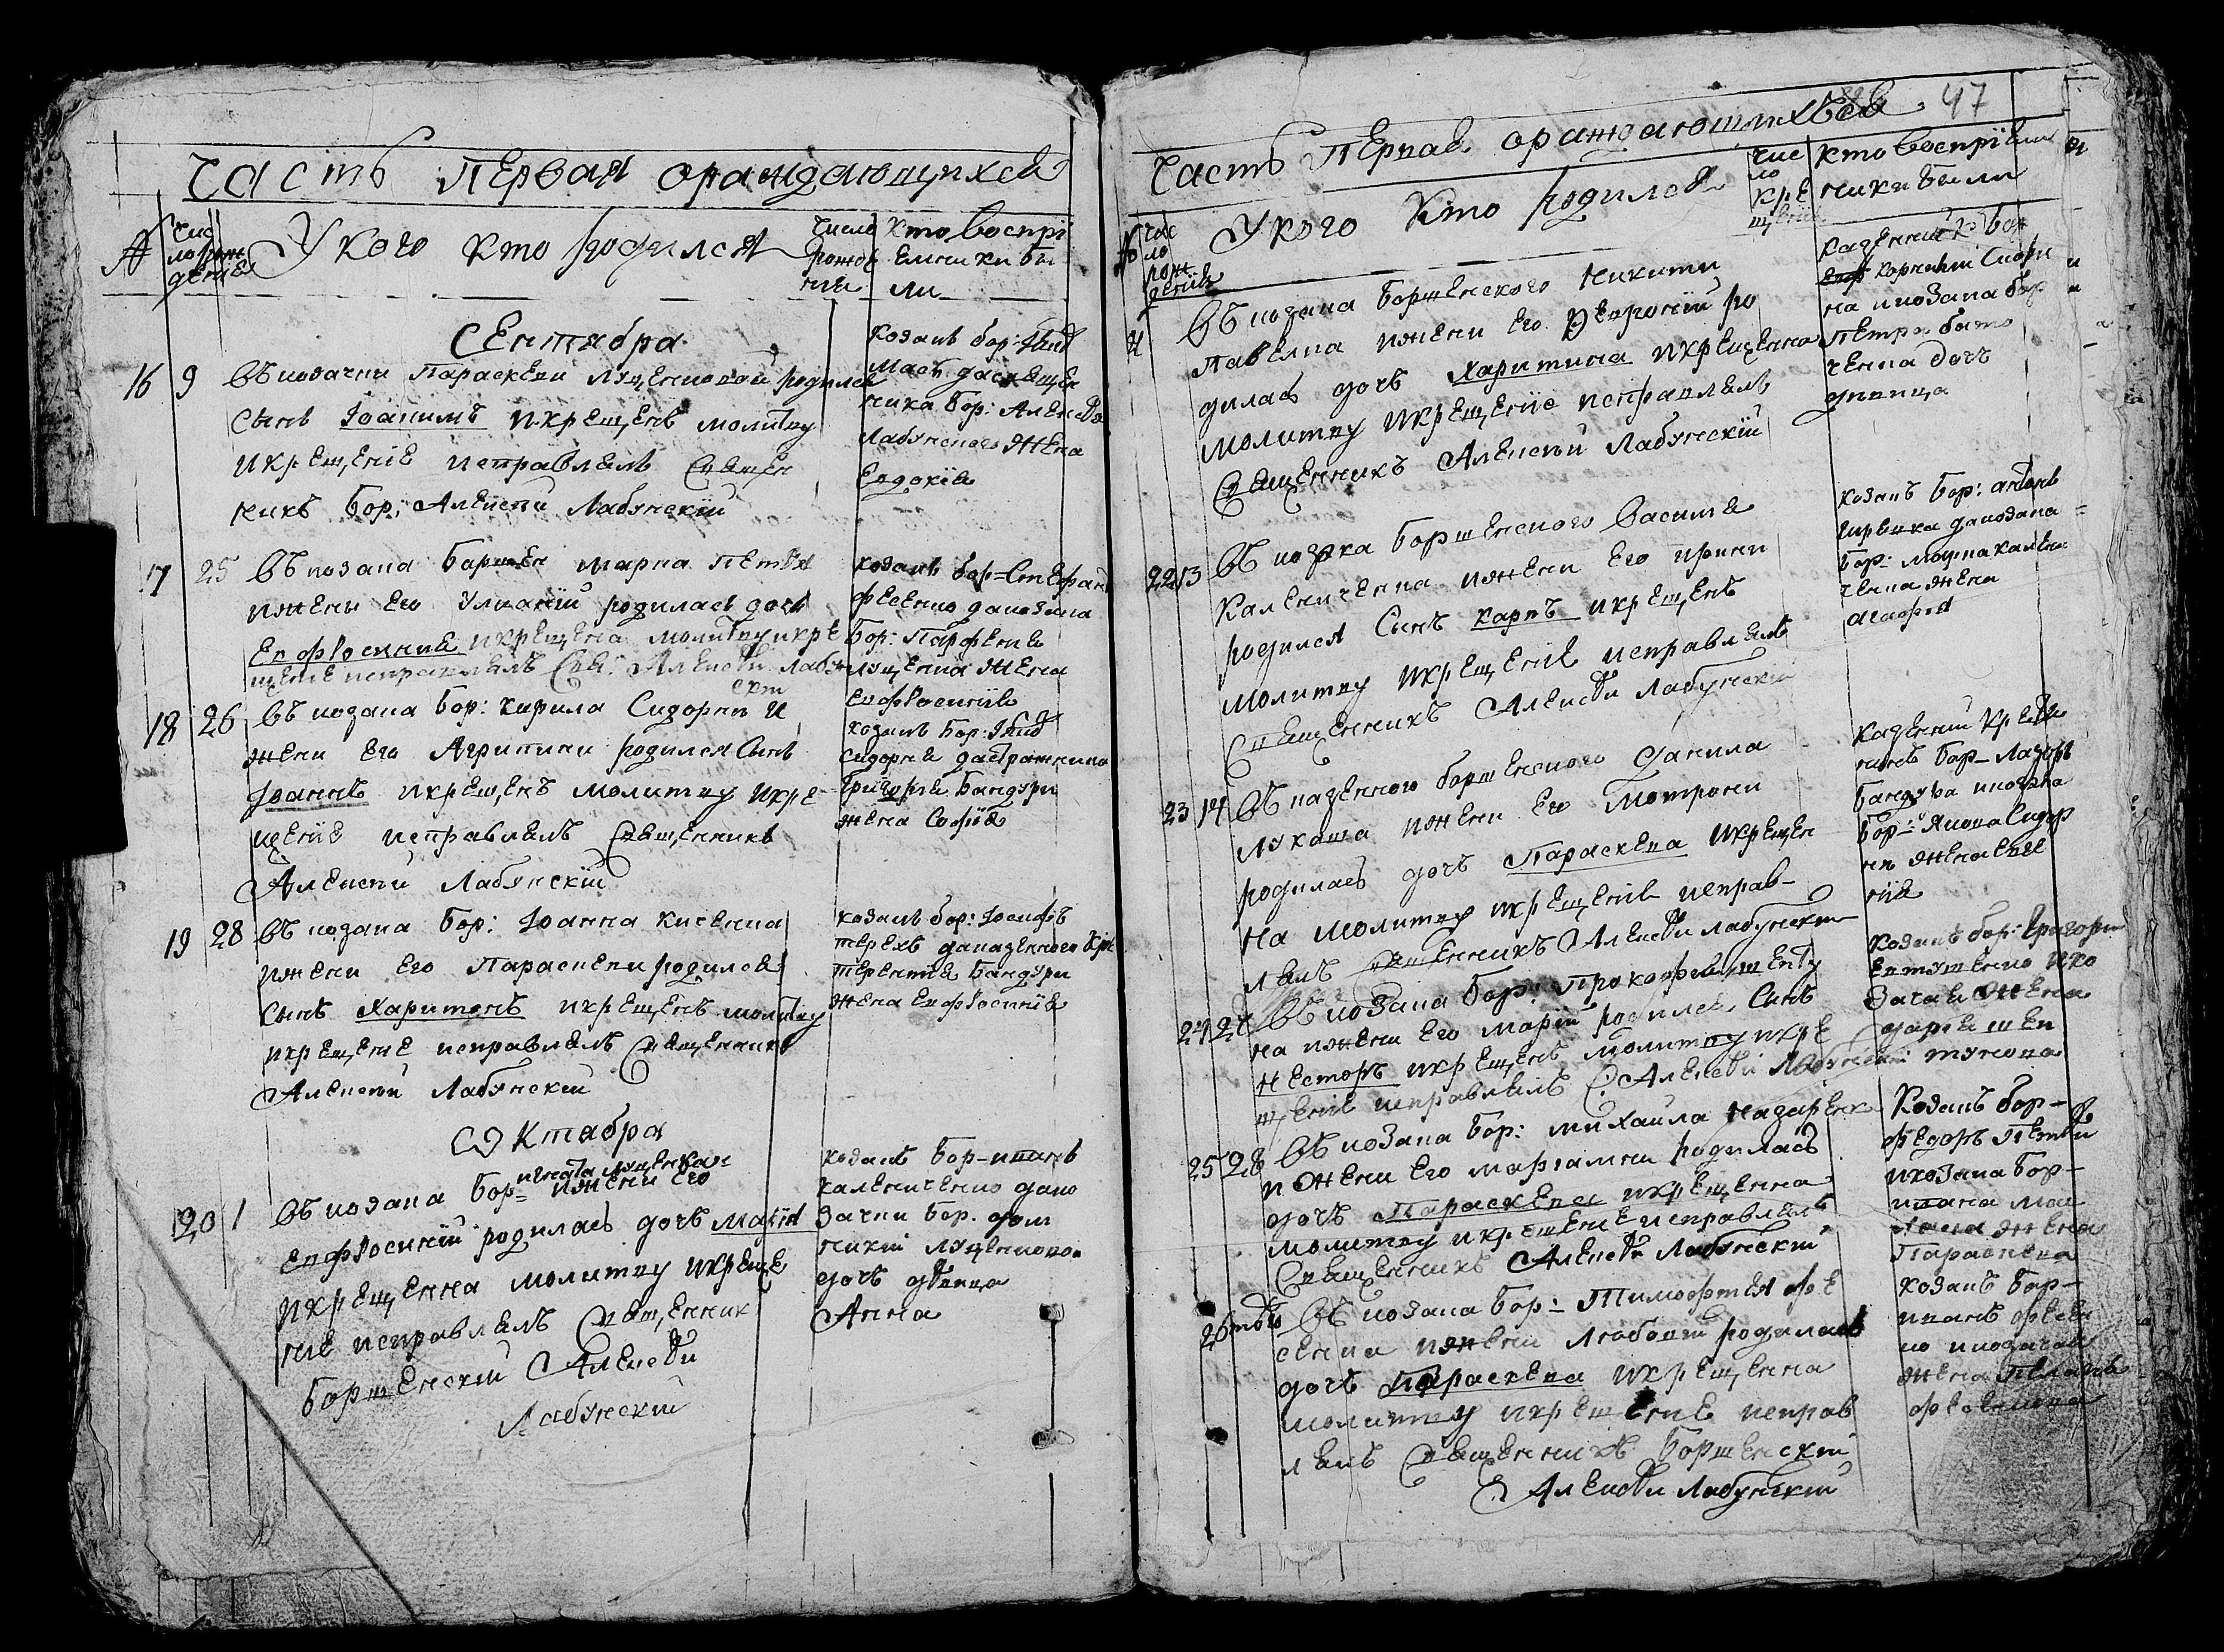 Часть Первая ораждающихся
№
Чис
ло рож
деніѧ
У кого кто родился
Число
рожде
нія
Кто воспрі
емники бы
ли
Сентября
16 9 въ козачки Параскеви Луценковой родился
сынъ Іоакимъ и крещенъ молитву
и крещеніе исправлялъ Священ
никъ Бор: Алексѣй Лабунскій
козакъ бор:
ника бор: Алексѣя
Лабунского жена
Евдокія
17 25 въ козака Боршен Марка Петѧ
и жени его Улианіи родилась дочь
Евфросинія и крещена молитву и кре
щеніе исправлялъ Свя: Алексѣй Лабун
скій
козакъ бор= Стефанъ
Фесенко да козака
Бор: Парфенія
Луценка жена
Евфросинія
18 26 въ козака Бор: Кирила Сидорки и
жени его Агрипини родился сынъ
Іоаннъ и крещенъ молитву и кре
щеніе исправлялъ Священникъ
Алексѣй Лабунскій
козакъ Бор:
Григорія Бандури
жена Софія
19 28 въ козака Бор: Іоанна Киченка
и жени его Параскеви родился
сынъ Харитонъ и крещенъ молитву
и крещеніе исправлялъ Священникъ
Алексѣй Лабунскій
козакъ бор: Іосифъ
Терехъ да казенного кре
Терентія Бандури
жена Евфросинія
Октября
20 1 въ козака Бор= Игната Луценка= и жени его
Евфросиніи родилась дочь Марія
и крещенна молитву и креще
ніе исправлялъ Священник
Боршенскій Алексѣй
Лабунскій
козакъ Бор- иванъ
Каленичено да ко
зачки бор. дом
никіи Луценково
дочъ дѣвица
Анна
47
Часть Первая ораждающихъся
Чис
ло
рож
деніѧ
У кого кто родился
Чис
ло
кре
щенія
Кто воспріем
ники были
въ козака Боршенского Никити
Павелка и жени его Февроніи ро
дилась дочь Харитина и крещенна
молитву и крещеніе исправлялъ
Священникъ Алексѣй Лабунскій
казенній к: Бор
на и козака бор
Петра бато
ченка дочъ
дѣвица
22 13 въ козака Боршенского Василія
Каленичена и жени его Ирини
родился сынъ Карпъ и крещенъ
молитву и крещеніе исправлялъ
Священникъ Алексѣй Лабунскій
козакъ Бор: антонъ
да козака
Бор: каленич
ченка жена
Агафія
23 14 въ казенного боршенского Данила
Лукаша и жени его Мотрони
родилась дочъ Параскева и крещен
на молитву и крещеніе исправ-
лялъ Священникъ Алексѣй Лабунскій
казенній крестя
нинъ бор- Лазоръ
Бандура и козака
бор: Якова Сидор
ки жена Евге
нія
24 27 въ козака бор: Прокофія шевту
на и жени его Маріи родился сынъ
Несторъ и крещенъ молитву и кре
щеніе исправлялъ С: Алексѣй Лабунскій
козакъ бор: Григорій
Евтушенко и ко
зачая жена
дарія шев
тунова
25 28 въ козака бор: Михаила Назаренк
и жени его Маріамни родилась
дочъ Параскева и крещенна
молитву и крещеніе исправлялъ
Священникъ Алексѣй Лабунскій
Козакъ бор-
Федоръ Петѧ
и козака бор-
ивана
жена
Параскева
26 тоѣ въ козака бор: Тимофтея Фе
сенки и жени Любови родилась
дочъ Параскева и крещенна
молитву и крещеніе исправ
лялъ Священникъ Боршенскій
Алексѣй Лабунскій
козакъ бор-
иванъ фесен
ко и козачая
жена Пелагія
фесенкова